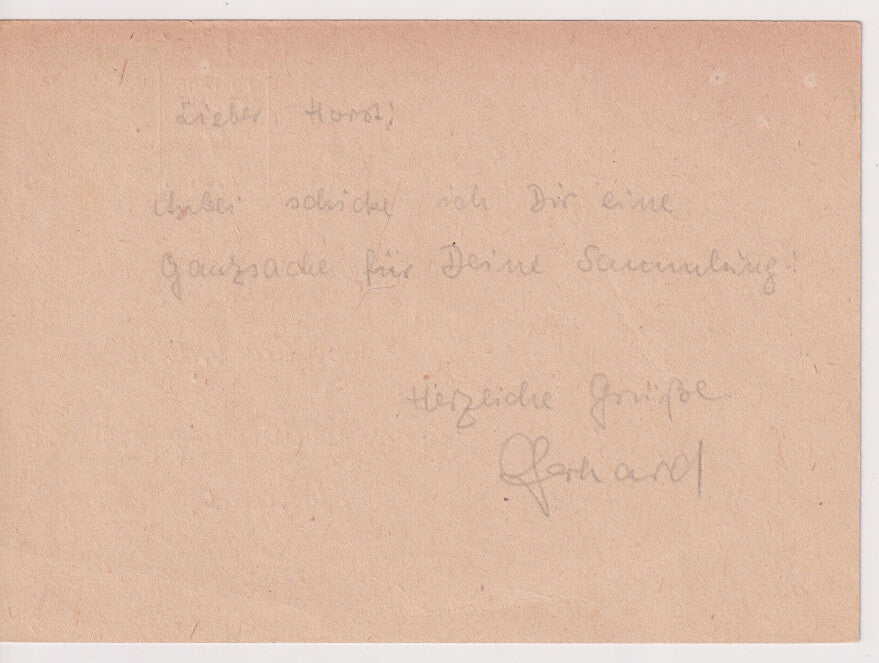 Lieber Horst!
Anbei schicke ich Dir eine
Ganzsache für Deine Sammlung!
Herzliche Grüße
Gerhard